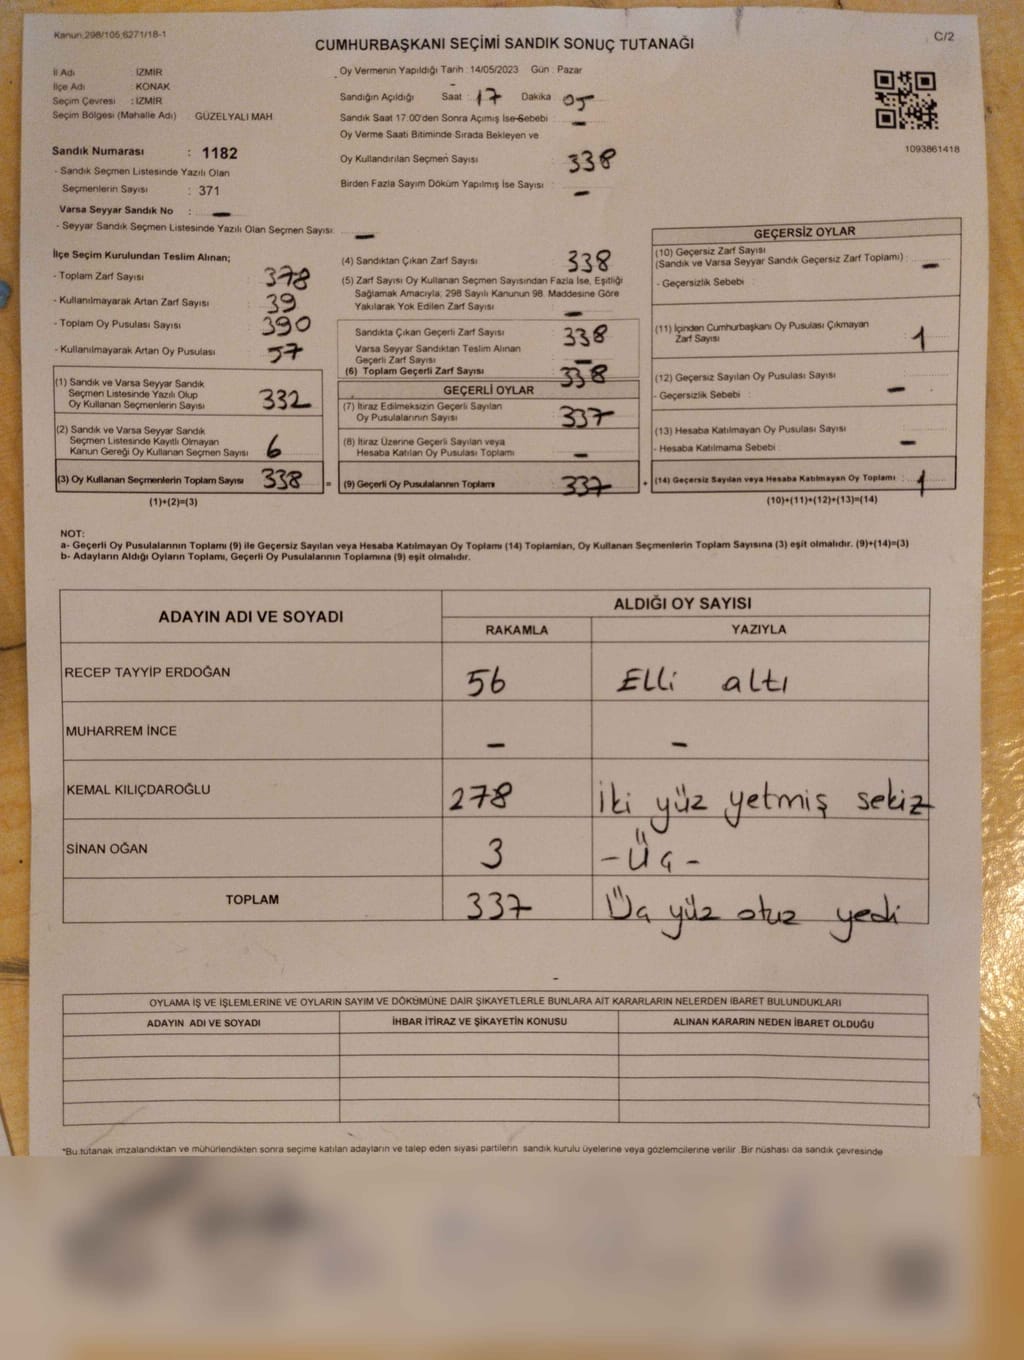 Kanun 298/105,6271/18-1
C/2
CUMHURBAŞKANI SEÇİMİ SANDIK SONUÇ TUTANAĞI
İl Adı : İZMİR
İlçe Adı : KONAK
Seçim Çevresi : İZMİR
Seçim Bölgesi (Mahalle Adı) GÜZELYALI MAH
Sandık Numarası : 1182
- Sandık Seçmen Listesinde Yazılı Olan
Seçmenlerin Sayısı : 371
Varsa Seyyar Sandık No : -
- Seyyar Sandık Seçmen Listesinde Yazılı Olan Seçmen Sayısı: -
Oy Vermenin Yapıldığı Tarih : 14/05/2023 Gün : Pazar
Sandığın Açıldığı Saat : 17 Dakika : 05
Sandık Saat 17:00'den Sonra Açımış İse Sebebi : -
Oy Verme Saati Bitiminde Sırada Bekleyen ve
Oy Kullandırılan Seçmen Sayısı : 338
Birden Fazla Sayım Döküm Yapılmış İse Sayısı : -
1093861418
İlçe Seçim Kurulundan Teslim Alınan;
- Toplam Zarf Sayısı : 378
- Kullanılmayarak Artan Zarf Sayısı : 39
- Toplam Oy Pusulası Sayısı : 390
- Kullanılmayarak Artan Oy Pusulası : 57
(1) Sandık ve Varsa Seyyar Sandık
Seçmen Listesinde Yazılı Olup
Oy Kullanan Seçmenlerin Sayısı : 332
(2) Sandık ve Varsa Seyyar Sandık
Seçmen Listesinde Kayıtlı Olmayan
Kanun Gereği Oy Kullanan Seçmen Sayısı : 6
(3) Oy Kullanan Seçmenlerin Toplam Sayısı : 338
(1)+(2)=(3)
(4) Sandıktan Çıkan Zarf Sayısı : 338
(5) Zarf Sayısı Oy Kullanan Seçmen Sayısından Fazla İse, Eşitliği
Sağlamak Amacıyla, 298 Sayılı Kanunun 98. Maddesine Göre
Yakılarak Yok Edilen Zarf Sayısı : -
Sandıkta Çıkan Geçerli Zarf Sayısı : 338
Varsa Seyyar Sandıktan Teslim Alınan
Geçerli Zarf Sayısı : -
(6) Toplam Geçerli Zarf Sayısı : 338
GEÇERLİ OYLAR
(7) İtiraz Edilmeksizin Geçerli Sayılan
Oy Pusulalarının Sayısı : 337
(8) İtiraz Üzerine Geçerli Sayılan veya
Hesaba Katılan Oy Pusulası Toplamı : -
= (9) Geçerli Oy Pusulalarının Toplamı : 337
GEÇERSİZ OYLAR
(10) Geçersiz Zarf Sayısı
(Sandık ve Varsa Seyyar Sandık Geçersiz Zarf Toplamı) : -
- Geçersizlik Sebebi :
(11) İçinden Cumhurbaşkanı Oy Pusulası Çıkmayan
Zarf Sayısı : 1
(12) Geçersiz Sayılan Oy Pusulası Sayısı :
- Geçersizlik Sebebi : -
(13) Hesaba Katılmayan Oy Pusulası Sayısı :
- Hesaba Katılmama Sebebi : -
+ (14) Geçersiz Sayılan veya Hesaba Katılmayan Oy Toplamı : 1
(10)+(11)+(12)+(13)=(14)
NOT:
a- Geçerli Oy Pusulalarının Toplamı (9) ile Geçersiz Sayılan veya Hesaba Katılmayan Oy Toplamı (14) Toplamları, Oy Kullanan Seçmenlerin Toplam Sayısına (3) eşit olmalıdır. (9)+(14)=(3)
b- Adayların Aldığı Oyların Toplamı, Geçerli Oy Pusulalarının Toplamına (9) eşit olmalıdır.
ADAYIN ADI VE SOYADI ALDIĞI OY SAYISI
RAKAMLA YAZIYLA
RECEP TAYYİP ERDOĞAN 56 Elli altı
MUHARREM İNCE - -
KEMAL KILIÇDAROĞLU 278 iki yüz yetmiş sekiz
SİNAN OĞAN 3 - Üç -
TOPLAM 337 Üç yüz otuz yedi
OYLAMA İŞ VE İŞLEMLERİNE VE OYLARIN SAYIM VE DÖKÜMÜNE DAİR ŞİKAYETLERLE BUNLARA AİT KARARLARIN NELERDEN İBARET BULUNDUKLARI
ADAYIN ADI VE SOYADI İHBAR İTİRAZ VE ŞİKAYETİN KONUSU ALINAN KARARIN NEDEN İBARET OLDUĞU
*Bu tutanak imzalandıktan ve mühürlendikten sonra seçime katılan adayların ve talep eden siyasi partilerin sandık kurulu üyelerine veya gözlemcilerine verilir .Bir nüshası da sandık çevresinde